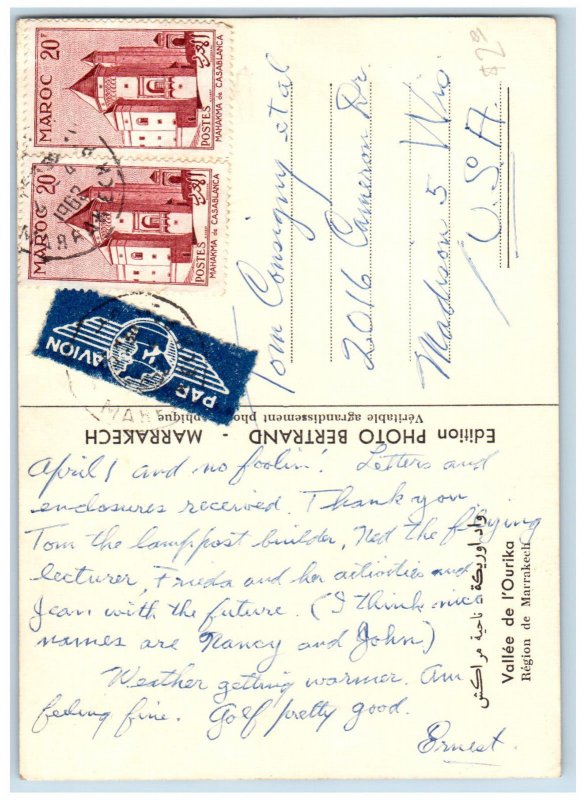 MAROC 20F
POSTES
MAHAKMA de CASABLANCA
MAROC 20F
POSTES
MAHAKMA de CASABLANCA
1962
PAR AVION
$2.93
Tom Consigny et al
2016 Cameron Dr.
Madison 5 Wis
U.S.A.
Edition PHOTO BERTRAND - MARRAKECH
Véritable agrandissement photographique
April 1 and no foolin! Letters and
enclosures received. Thank you
Tom the lamppost builder, Ned the flying
lecturer, Frieda and her activities and
Jean with the future. (I think nice
names are Nancy and John)
Weather getting warmer. Am
feeling fine. Golf pretty good.
Ernest.
واد اوريكة ناحية مراكش
Vallée de l'Ourika
Région de Marrakech